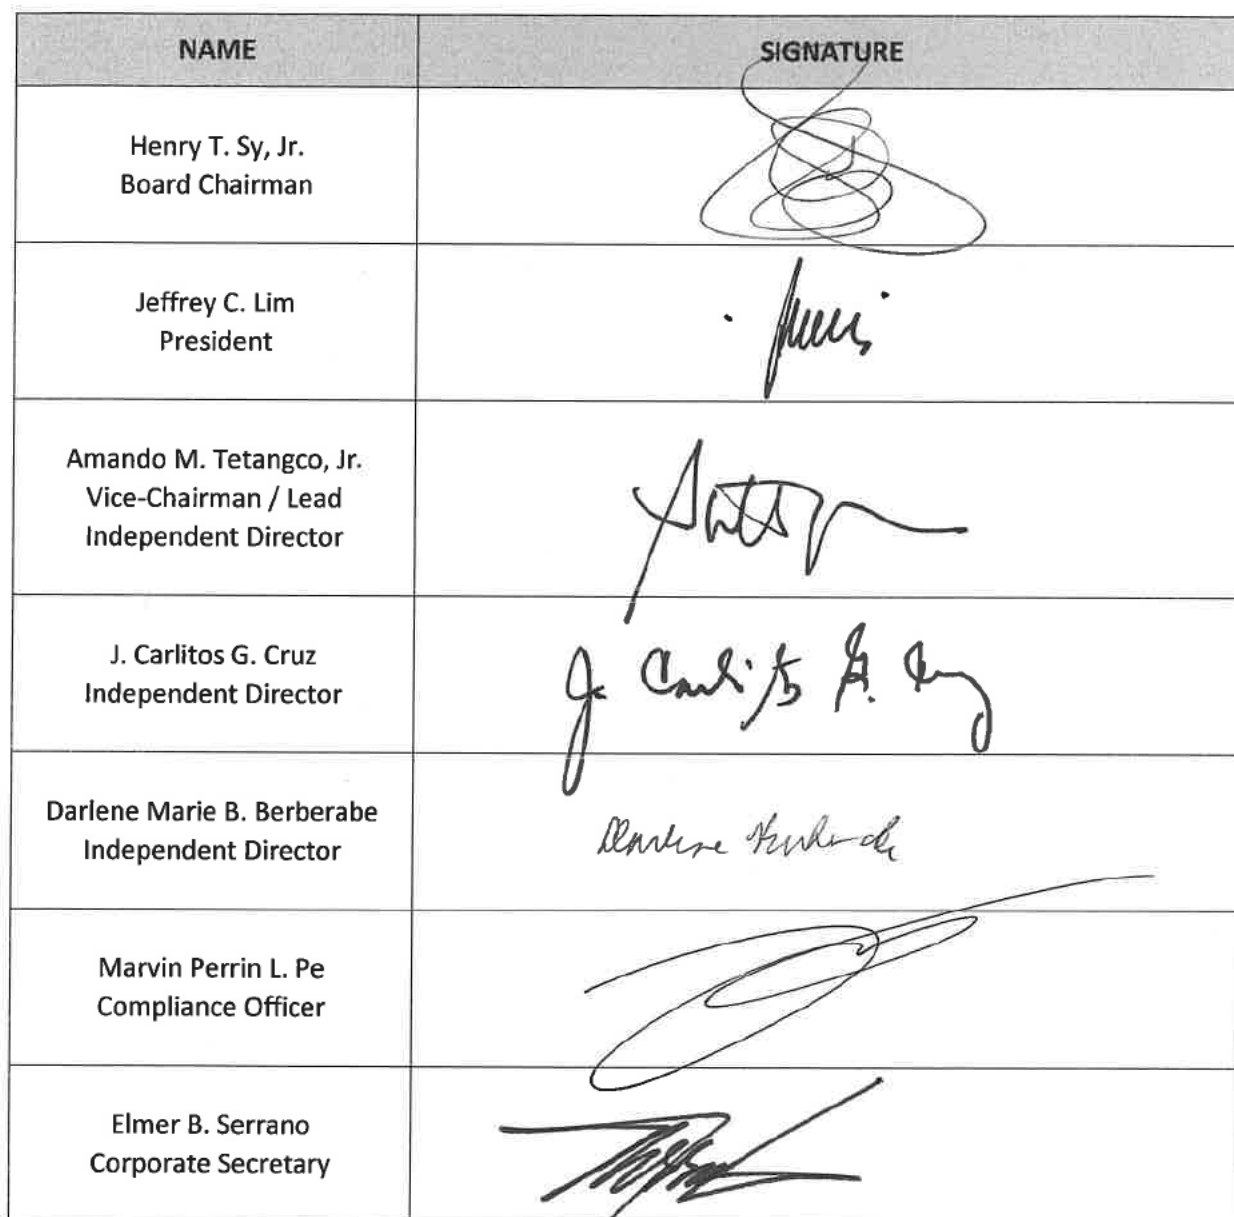 NAME SIGNATURE
Henry T. Sy, Jr.
Board Chairman
Jeffrey C. Lim
President
Amando M. Tetangco, Jr.
Vice-Chairman / Lead
Independent Director
J. Carlitos G. Cruz
Independent Director
J. Carlitos G. Cruz
Darlene Marie B. Berberabe
Independent Director
Marvin Perrin L. Pe
Compliance Officer
Elmer B. Serrano
Corporate Secretary